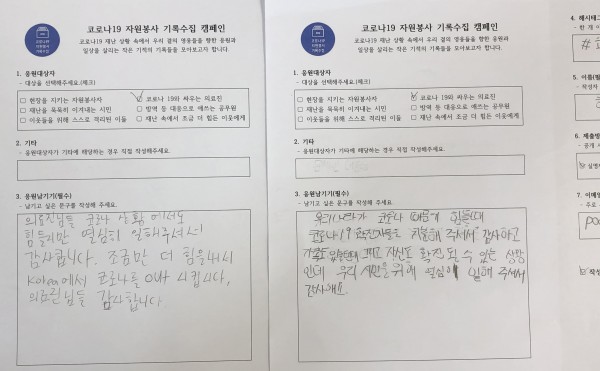 코로나19
자원봉사
기록수집
코로나19 자원봉사 기록수집 캠페인
코로나19 재난 상황 속에서 우리 곁의 영웅들을 향한 응원과
일상을 살리는 작은 기적의 기록들을 모아보고자 합니다.
1. 응원대상자
- 대상을 선택해주세요.(체크)
□ 현장을 지키는 자원봉사자
☑ 코로나 19와 싸우는 의료진
□ 재난을 묵묵히 이겨내는 시민
□ 방역 등 대응으로 애쓰는 공무원
□ 이웃들을 위해 스스로 격리된 이들
□ 재난 속에서 조금 더 힘든 이웃에게
2. 기타
- 응원대상자가 기타에 해당하는 경우 직접 작성해주세요.
3. 응원남기기(필수)
- 남기고 싶은 문구를 작성해 주세요.
의료진님들 코로나 상황에서도
힘들지만 열심히 일해주셔서
감사합니다. 조금만 더 힘을내시
Korea에서 코로나를 OUT 시킵시다,
의료진님들 감사합니다
코로나19
자원봉사
기록수집
코로나19 자원봉사 기록수집 캠페인
코로나19 재난 상황 속에서 우리 곁의 영웅들을 향한 응원과
일상을 살리는 작은 기적의 기록들을 모아보고자 합니다.
1. 응원대상자
- 대상을 선택해주세요.(체크)
□ 현장을 지키는 자원봉사자
☑ 코로나 19와 싸우는 의료진
□ 재난을 묵묵히 이겨내는 시민
□ 방역 등 대응으로 애쓰는 공무원
□ 이웃들을 위해 스스로 격리된 이들
□ 재난 속에서 조금 더 힘든 이웃에게
2. 기타
- 응원대상자가 기타에 해당하는 경우 직접 작성해주세요.
3. 응원남기기(필수)
- 남기고 싶은 문구를 작성해 주세요.
우리나라가 코로나 때문에 힘들때
코로나19 확진자들을 치료해 주셔서 감사하고
그리고 자신도 확진 될 수 있는 상황
인데 우리 시민을 위해 열심히 일해 주셔서
감사해요.
4. 해시태그
5. 이름(필
- 작성자
6. 제출방
- 공개
7. 이메일
- 주로
☑ 작성